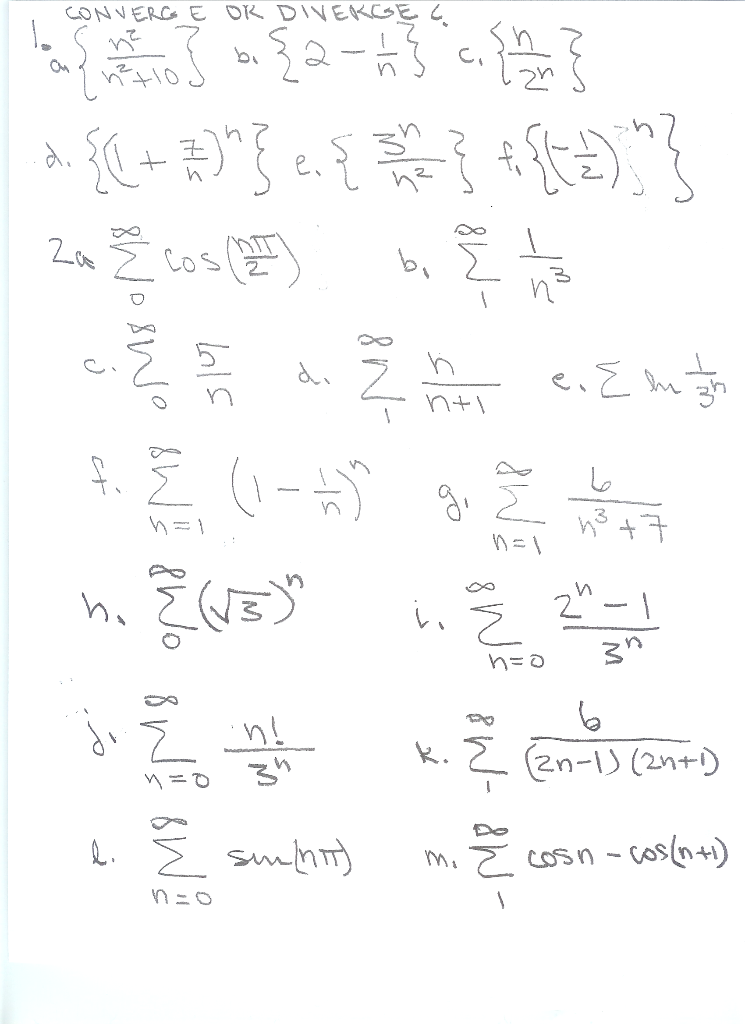 CONVERGE OR DIVERGE?
1. a. {n²/(n²+10)} b. {2 - 1/n} c. {n/2n}
d. {(1 + 7/n)ⁿ} e. {3ⁿ/n²} f. {(-1/2)ⁿ}
2a ∞Σ0 cos(nπ/2) b. ∞Σ1 1/n³
c. ∞Σ0 5/n d. ∞Σ1 n/(n+1) e. Σ ln 1/3ⁿ
f. ∞Σn=1 (1 - 1/n)ⁿ g. ∞Σn=1 6/(n³+7)
h. ∞Σ0 (√3)ⁿ i. ∞Σn=0 (2ⁿ-1)/3ⁿ
j. ∞Σn=0 n!/3ⁿ k. ∞Σ1 6/((2n-1)(2n+1))
l. ∞Σn=0 sin(nπ) m. ∞Σ1 cosn - cos(n+1)